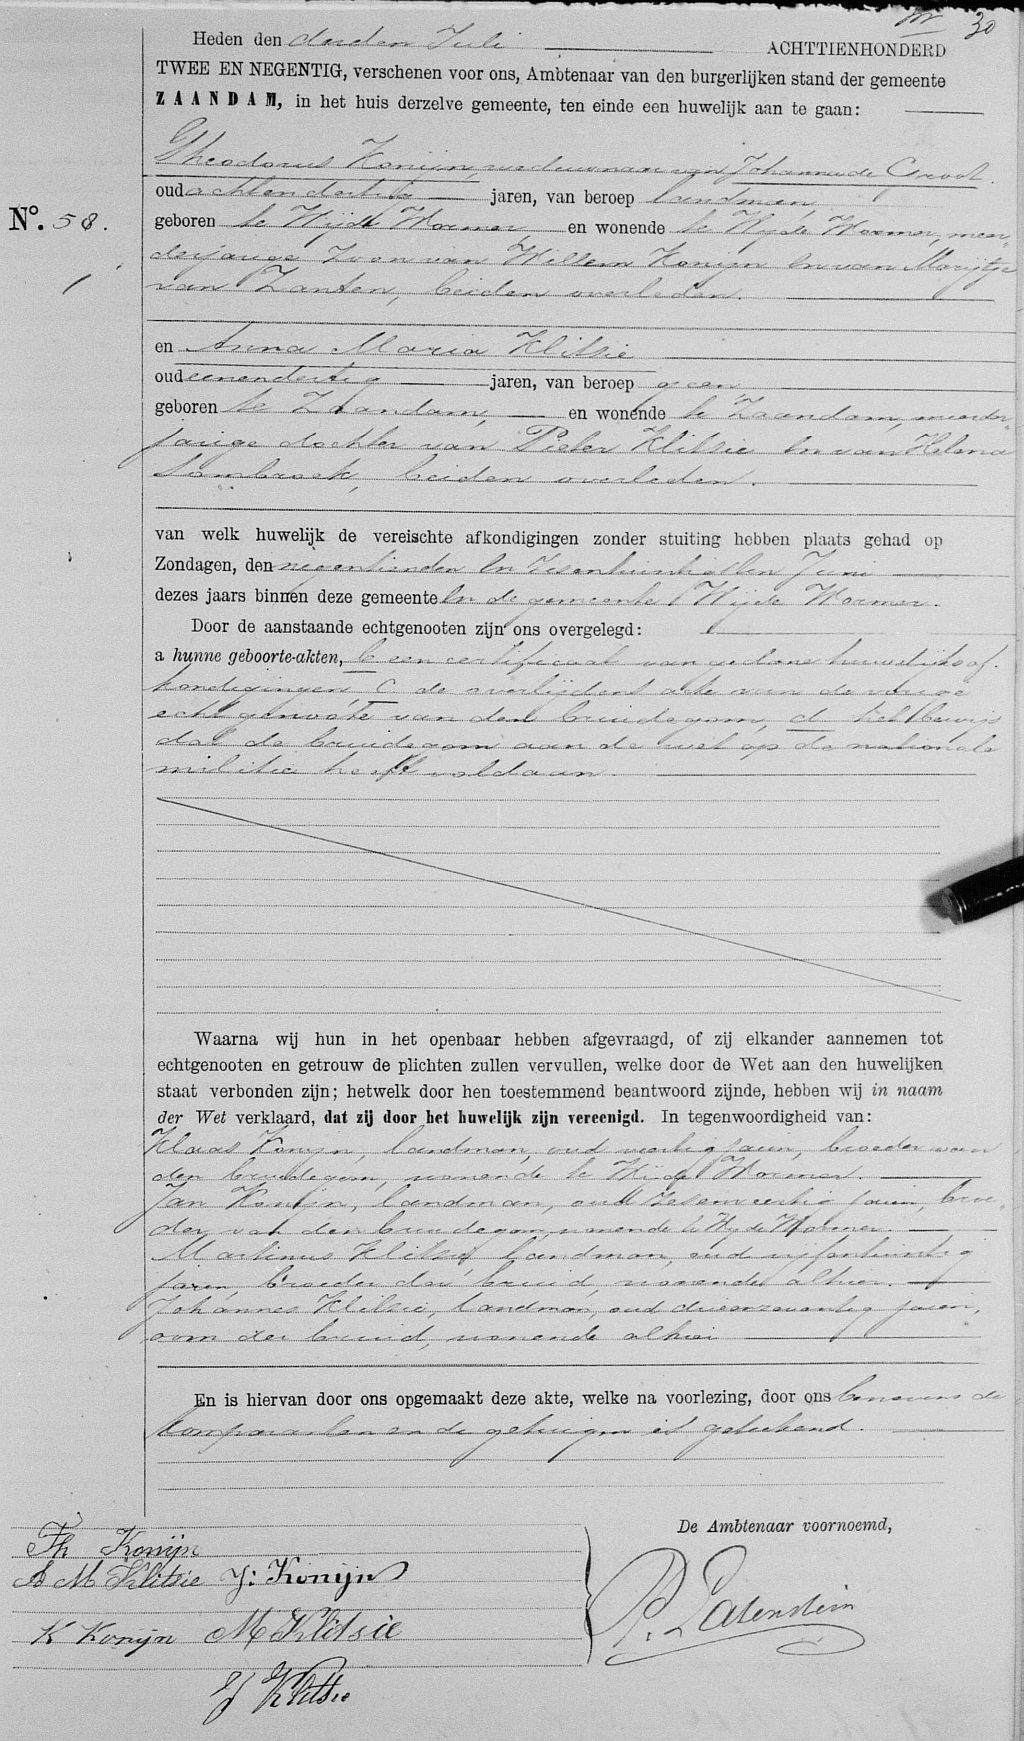 30
Heden den derden Juli ACHTTIENHONDERD
TWEE EN NEGENTIG, verschenen voor ons, Ambtenaar van den burgerlijken stand der gemeente
ZAANDAM, in het huis derzelve gemeente, ten einde een huwelijk aan te gaan:
Theodorus Konijn, weduwnaar van Johanna de Groot.
oud achtendertig jaren, van beroep landman,
No. 58. geboren te Wijde Wormer en wonende te Wijde Wormer, meer-
derjarige zoon van Willem Konijn en van Marijtje
van Zanten, beiden overleden.
en Anna Maria Klitsie
oud eenendertig jaren, van beroep geen
geboren te Zaandam, en wonende te Zaandam, meerder-
jarige dochter van Pieter Klitsie en van Helena
Sombroek, beiden overleden.
van welk huwelijk de vereischte afkondigingen zonder stuiting hebben plaats gehad op
Zondagen, den negentienden en zesentwintigsten Juni
dezes jaars binnen deze gemeente en de gemeente Wijde Wormer.
Door de aanstaande echtgenooten zijn ons overgelegd:
a hunne geboorte-akten, b een certificaat van gedane huwelijksaf-
kondigingen, c. de overlijdens akte van de vorige
echtgenoote van den bruidegom, d. het bewijs
dat de bruidegom aan de wet op de nationale
militie heeft voldaan.
Waarna wij hun in het openbaar hebben afgevraagd, of zij elkander aannemen tot
echtgenooten en getrouw de plichten zullen vervullen, welke door de Wet aan den huwelijken
staat verbonden zijn; hetwelk door hen toestemmend beantwoord zijnde, hebben wij in naam
der Wet verklaard, dat zij door het huwelijk zijn vereenigd. In tegenwoordigheid van:
Klaas Konijn, landman, oud veertig jaren, broeder van
den bruidegom, wonende te Wijde Wormer.
Jan Konijn, landman, oud zesenveertig jaren, broe-
der van den bruidegom, wonende te Wijde Wormer
Martinus Klitsie, landman, oud vijfentwintig
jaren, broeder der bruid, wonende alhier.
Johannes Klitsie, landman, oud drieenzeventig jaren,
oom der bruid, wonende alhier
En is hiervan door ons opgemaakt deze akte, welke na voorlezing, door ons benevens de
komparanten en de getuigen is geteekend.
De Ambtenaar voornoemd,
Th Konijn
A M Klitsie J: Konijn
K Konijn M Klitsie
J Klitsie